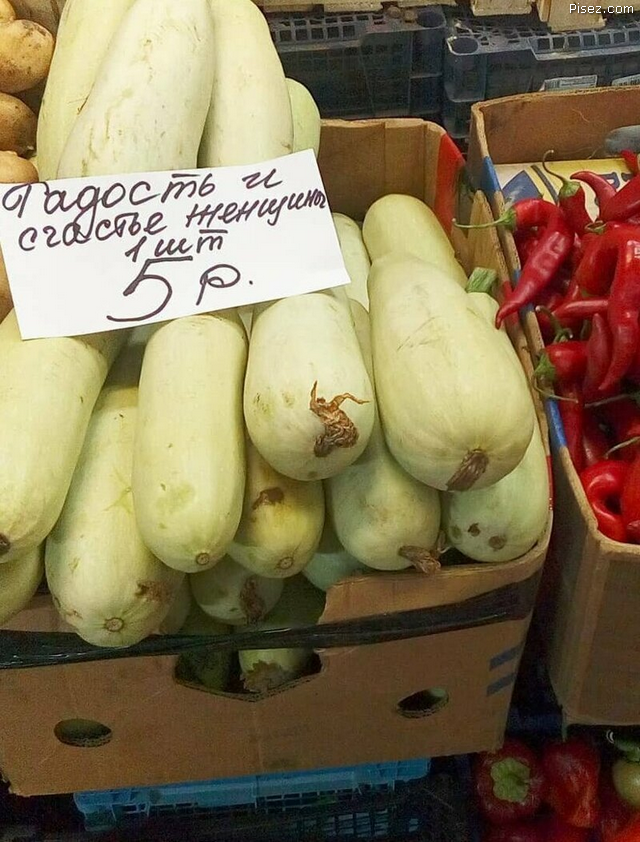 Pisez.com
Радость и
счастье женщины
1 шт
5 р.